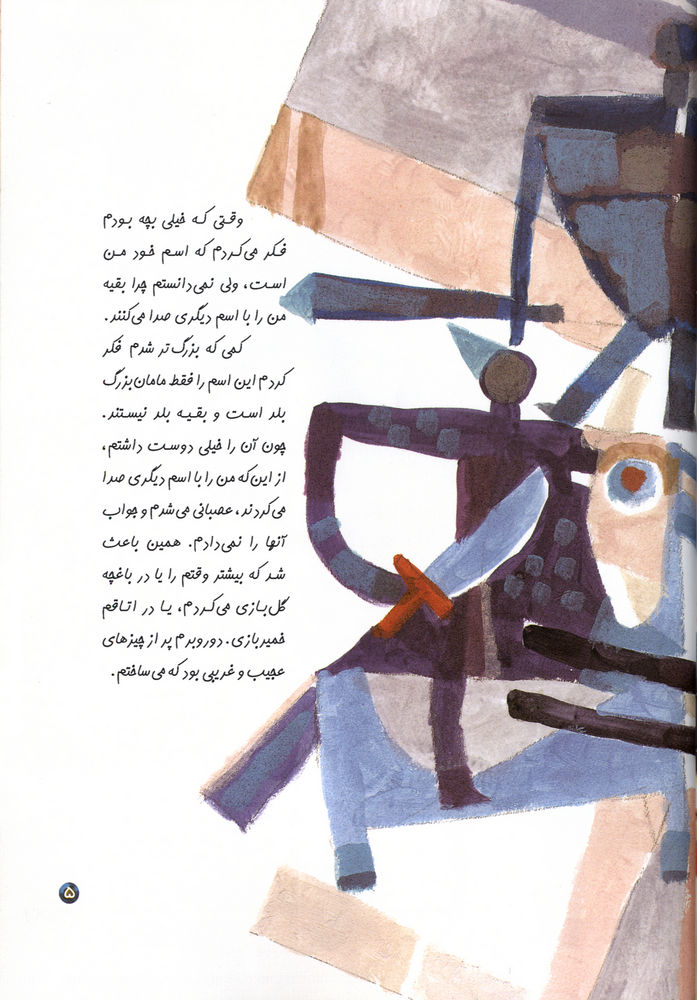 وقتی که خیلی بچه بودم
فکر می‌کردم که اسم خود من
است، ولی نمی‌دانستم چرا بقیه
من را با اسم دیگری صدا می‌کنند.
کمی که بزرگ‌تر شدم فکر
کردم این اسم را فقط مامان‌بزرگ
بلد است و بقیه بلد نیستند.
چون آن را خیلی دوست داشتم،
از این‌که من را با اسم دیگری صدا
می‌کردند، عصبانی می‌شدم و جواب
آنها را نمی‌دادم. همین باعث
شد که بیشتر وقتم را یا در باغچه
گل‌بازی می‌کردم، یا در اتاقم
خمیربازی. دوروبرم پر از چیزهای
عجیب و غریبی بود که می‌ساختم.
۵